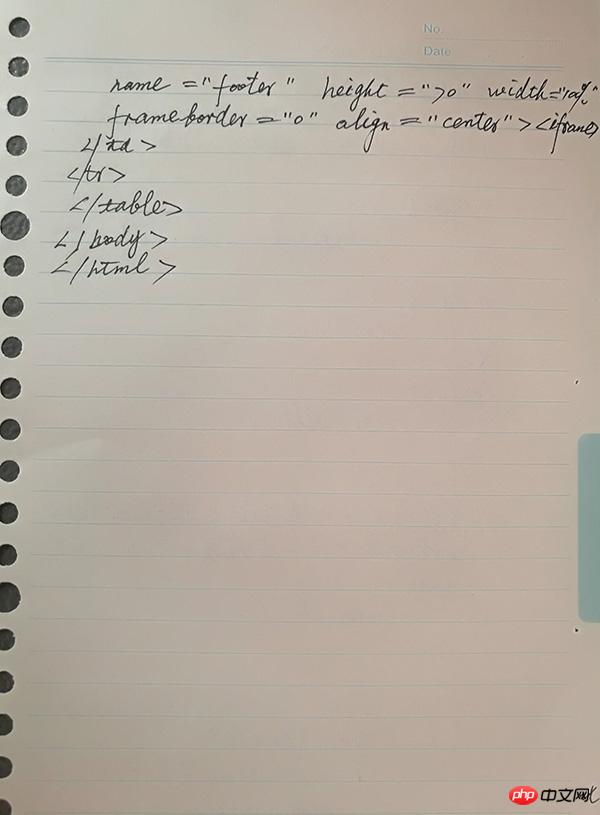 No.
Date
name ="footer" height ="70" width="100%"
frameborder ="0" align ="center"><iframe>
</td>
</tr>
</table>
</body>
</html>
php 中文网